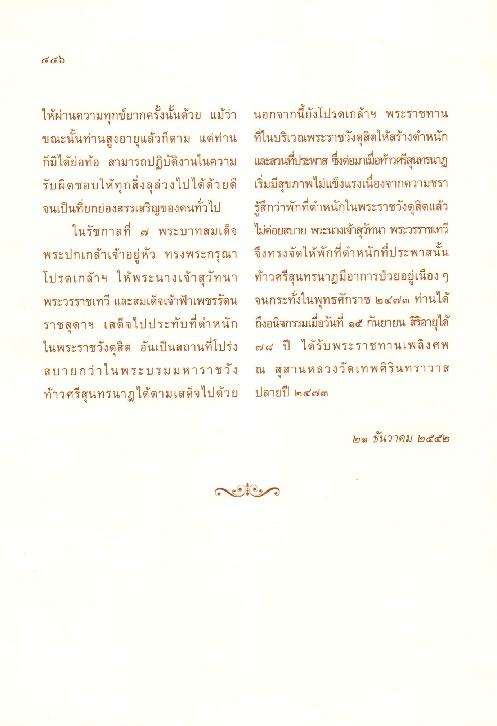 ๔๔๖
ให้ผ่านความทุกข์ยากครั้งนั้นด้วย แม้ว่า
ขณะนั้นท่านสูงอายุแล้วก็ตาม แต่ท่าน
ก็มิได้ย่อท้อ สามารถปฏิบัติงานในความ
รับผิดชอบให้ทุกสิ่งลุล่วงไปได้ด้วยดี
จนเป็นที่ยกย่องสรรเสริญของคนทั่วไป
ในรัชกาลที่ ๗ พระบาทสมเด็จ
พระปกเกล้าเจ้าอยู่หัว ทรงพระกรุณา
โปรดเกล้าฯ ให้พระนางเจ้าสุวัทนา
พระวรราชเทวี และสมเด็จเจ้าฟ้าเพชรรัตน
ราชสุดาฯ เสด็จไปประทับที่ตำหนัก
ในพระราชวังดุสิต อันเป็นสถานที่โปร่ง
สบายกว่าในพระบรมมหาราชวัง
ท้าวศรีสุนทรนาฏได้ตามเสด็จไปด้วย
นอกจากนี้ยังโปรดเกล้าฯ พระราชทาน
ที่ในบริเวณพระราชวังดุสิตให้สร้างตำหนัก
และสวนที่ประพาส ซึ่งต่อมาเมื่อท้าวศรีสุนทรนาฏ
เริ่มมีสุขภาพไม่แข็งแรงเนื่องจากความชรา
รู้สึกว่าพักที่ตำหนักในพระราชวังดุสิตแล้ว
ไม่ค่อยสบาย พระนางเจ้าสุวัทนา พระวรราชเทวี
จึงทรงจัดให้พักที่ตำหนักที่ประพาสนั้น
ท้าวศรีสุนทรนาฏมีอาการป่วยอยู่เนือง ๆ
จนกระทั่งในพุทธศักราช ๒๔๗๓ ท่านได้
ถึงอนิจกรรมเมื่อวันที่ ๑๕ กันยายน สิริอายุได้
๗๘ ปี ได้รับพระราชทานเพลิงศพ
ณ สุสานหลวงวัดเทพศิรินทราวาส
ปลายปี ๒๔๗๓
๒๑ ธันวาคม ๒๕๕๒